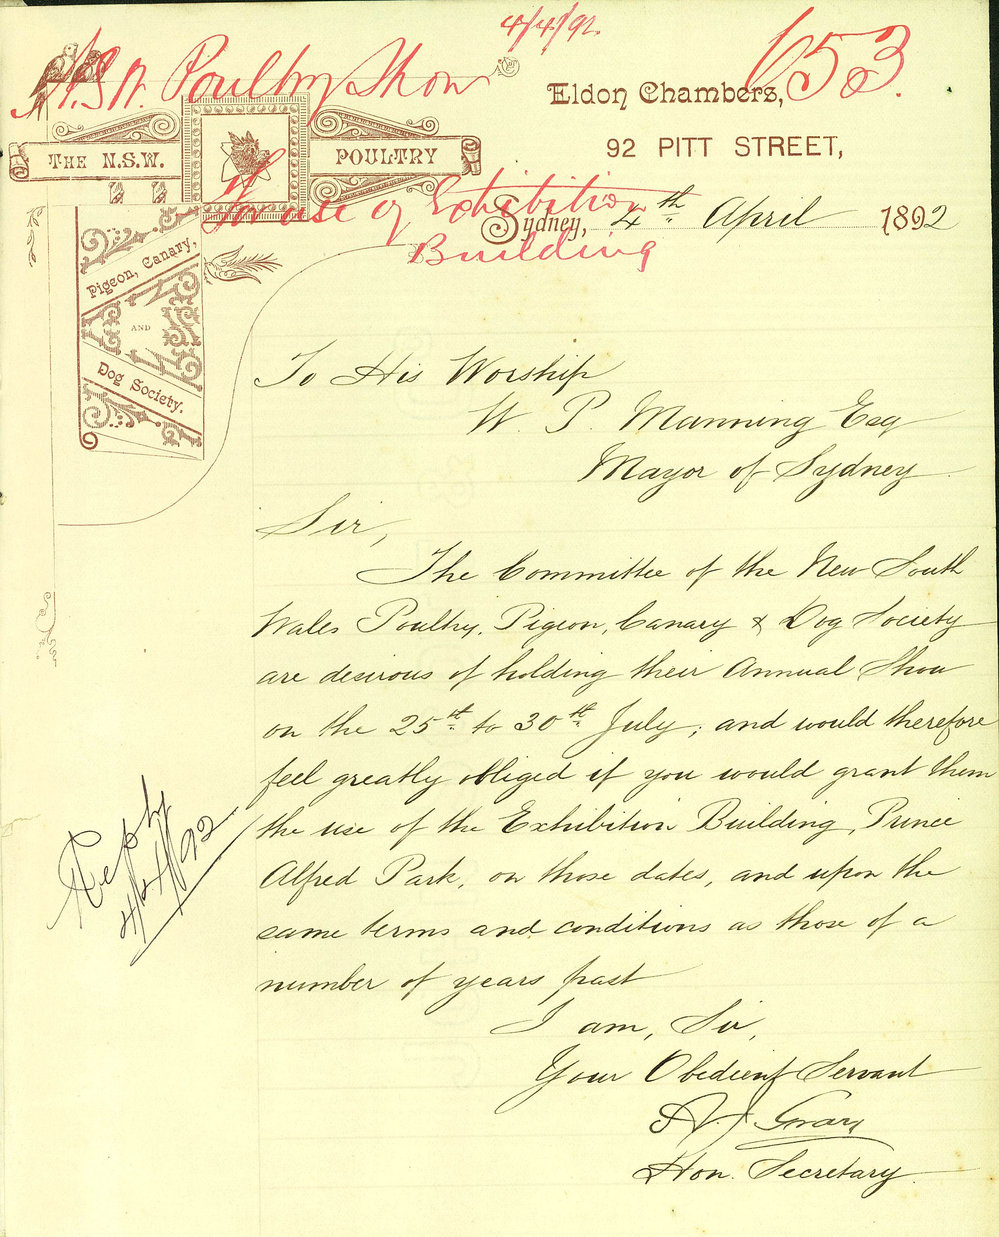 4/4/92.
N.S.W. Poultry Show
653.
Eldon Chambers,
92 PITT STREET,
THE N.S.W. POULTRY
Pigeon, Canary,
AND
Dog Society.
for use of Exhibition
Building
Sydney, 4th April 1892
To His Worship
W. P. Manning Esq
Mayor of Sydney
Sir,
The Committee of the New South
Wales Poultry, Pigeon, Canary & Dog Society
are desirous of holding their Annual Show
on the 25th to 30th July, and would therefore
feel greatly obliged if you would grant them
the use of the Exhibition Building, Prince
Alfred Park, on those dates, and upon the
same terms and conditions as those of a
number of years past
Reply
4/4/92
I am, Sir,
Your Obedient Servant
Hon. Secretary